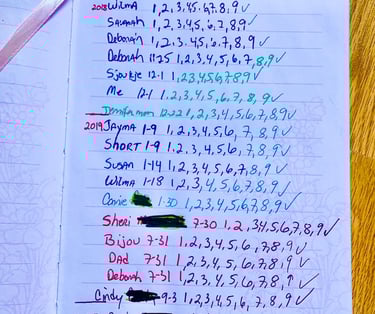 2018 Wilma 1,2,3,4,5,6,7,8,9✓
Savanah 1,2,3,4,5,6,7,8,9✓
Deborah 1,2,3,4,5,6,7,8,9✓
Deborah 11-25 1,2,3,4,5,6,7,8,9✓
Sjoukje 12-1 1,2,3,4,5,6,7,8,9✓
Me 12-1 1,2,3,4,5,6,7,8,9✓
12-22 1,2,3,4,5,6,7,8,9✓
2019 Jayma 1-9 1,2,3,4,5,6,7,8,9✓
Short 1-9 1,2,3,4,5,6,7,8,9✓
Susan 1-14 1,2,3,4,5,6,7,8,9✓
Wilma 1-18 1,2,3,4,5,6,7,8,9✓
1-30 1,2,3,4,5,6,7,8,9✓
Sheri 7-30 1,2,3,4,5,6,7,8,9✓
Bijou 7-31 1,2,3,4,5,6,7,8,9✓
Dad 7-31 1,2,3,4,5,6,7,8,9✓
Deborah 7-31 1,2,3,4,5,6,7,8,9✓
Cindy 9-3 1,2,3,4,5,6,7,8,9✓